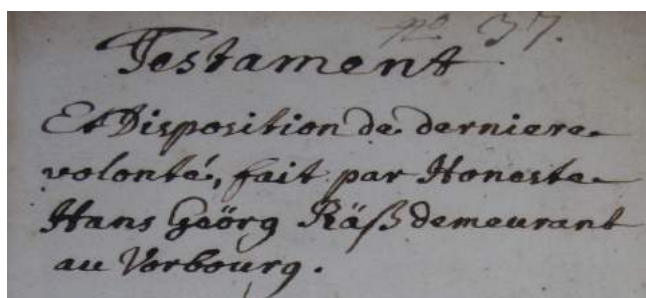 no 37.
Testament
Et Disposition de derniere
volonté, fait par Honeste
Hans Geörg Räß demeurant
au Vorbourg.